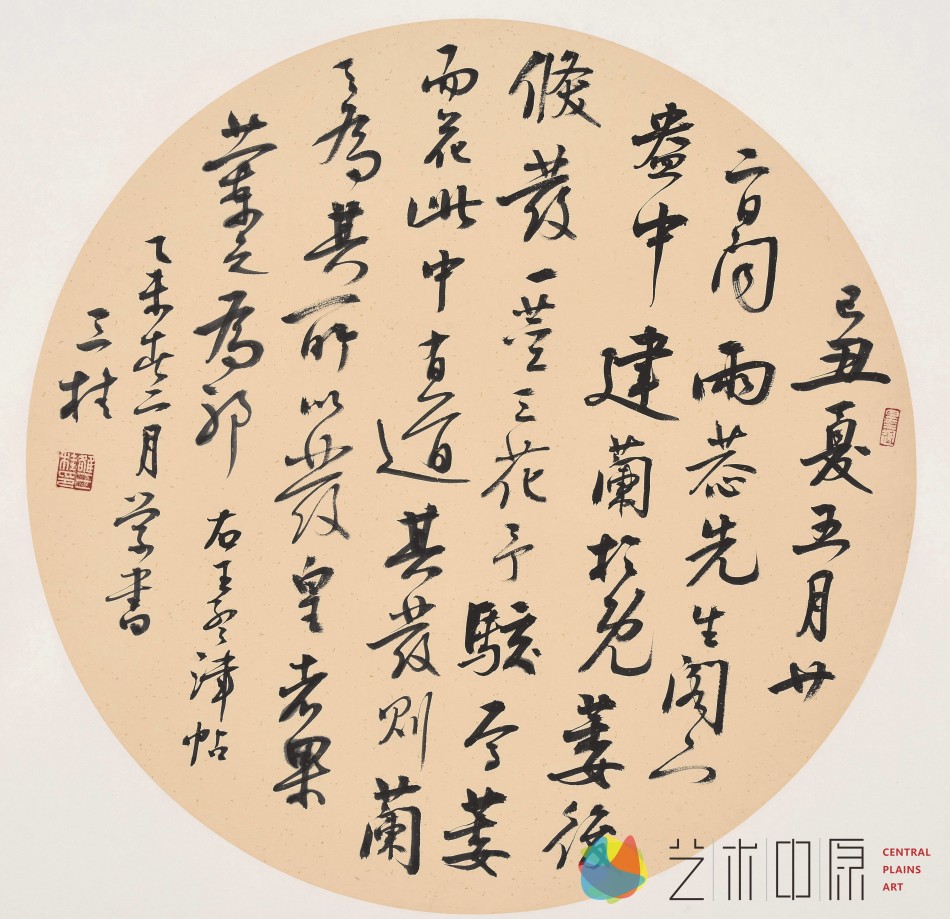 己丑夏五月廿
二日同雨恭先生阁下
盎中建蘭於免萎後
倏發一莖三花予駭焉萎
而花此中有道其發則蘭
之為其所以發皇老果
蘭之為邪右王孟津帖
乙未春二月學書
三桂
艺术中原
CENTRAL
PLAINS
ART